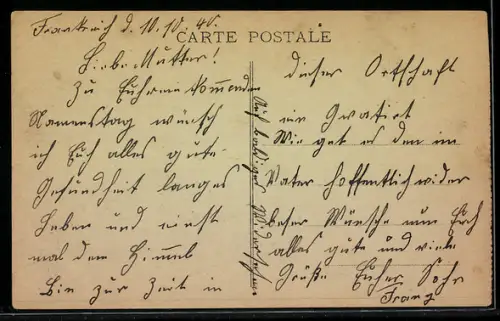 Frankreich d. 10.10.40.
CARTE POSTALE
Liebe Mutter!
Zu Euhrem kommenden
Namenstag wünsch
ich Euch alles gute
Gesundheit langes
Leben und einst
mal den Himmel
Bin zur Zeit in
dieser Ortschaft
ein Quatirt
Wie get es den im
Vater hoffentlich wider
beser Wünsche nun Euch
alles gute und viele
Grüße Euher Sohn
Franz
Auf baldiges Widersehen